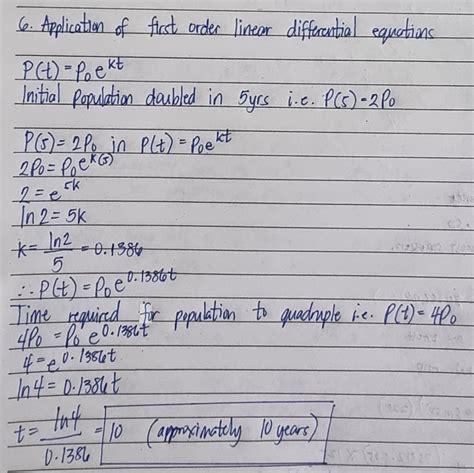 6. Application of first order linear differential equations
P(t) = P₀e^kt
Initial Population doubled in 5yrs i.e. P(5) = 2P₀
P(5) = 2P₀ in P(t) = P₀e^kt
2P₀ = P₀e^k(5)
2 = e^5k
ln 2 = 5k
k = ln2/5 = 0.1386
∴ P(t) = P₀e^0.1386t
Time required for population to quadruple i.e. P(t) = 4P₀
4P₀ = P₀ e^0.1386t
4 = e^0.1386t
ln 4 = 0.1386t
t = ln4/0.1386 = 10 (approximately 10 years)